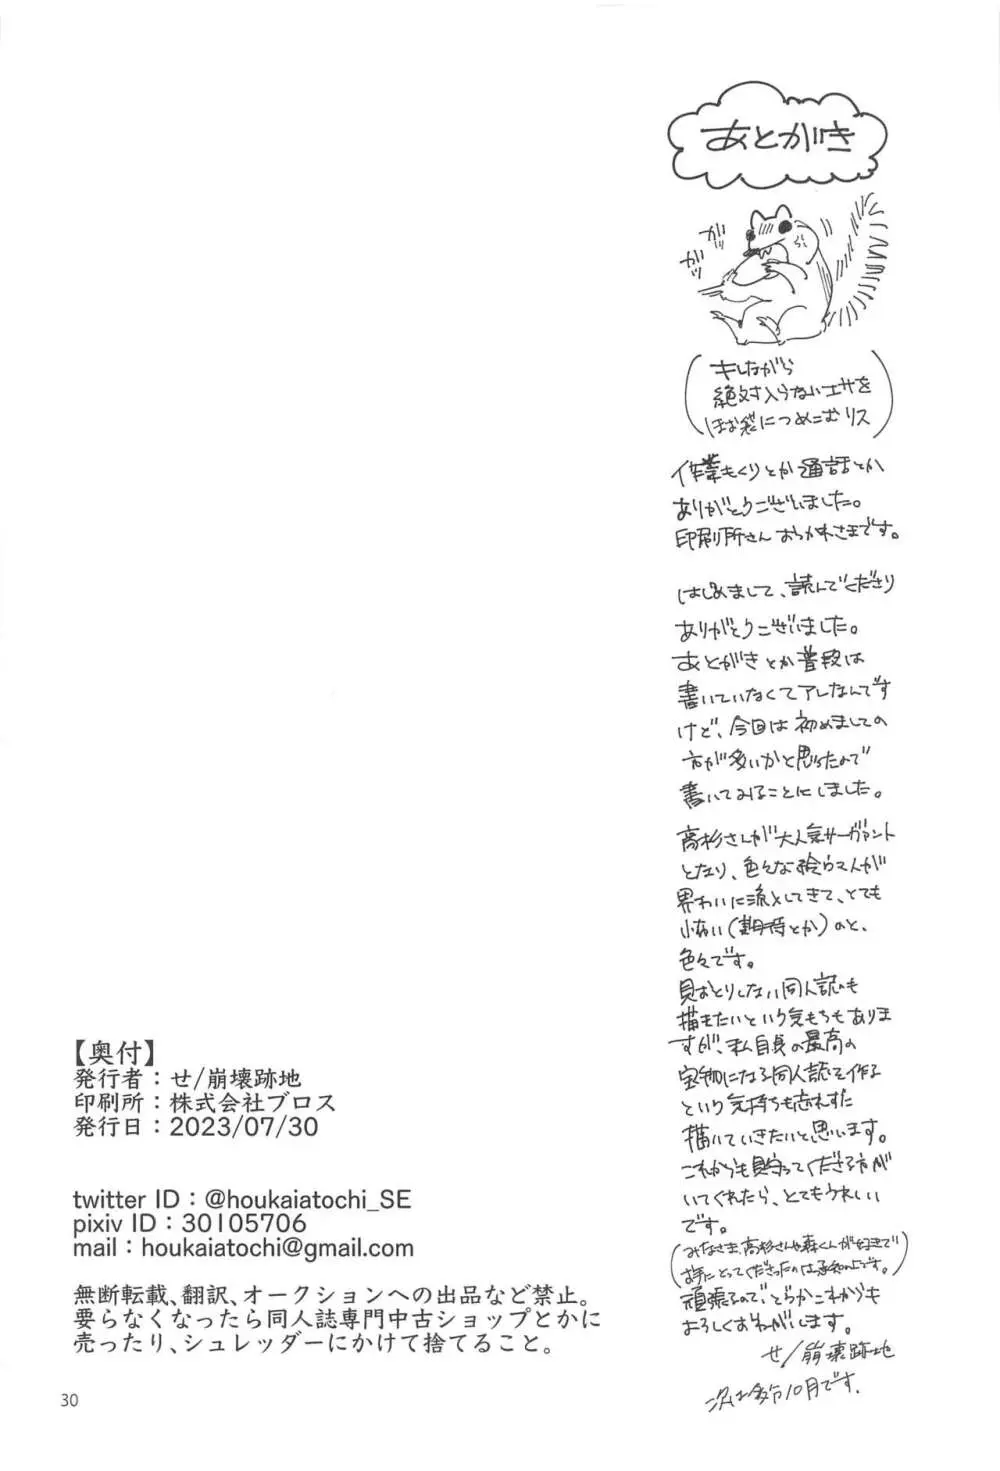 あとがき
ガッ
ガッ
キレながら
絶対入らないエサを
ほお袋につめこむリス
作業もくりとか通話とか
ありがとうございました。
印刷所さんおつかれさまです。
はじめまして、読んでくださり
ありがとうございました。
あとがきとか普段は
書いていなくてアレなんです
けど、今回は初めましての
方が多いかと思ったので
書いてみることにしました。
高杉さんが大人気サーヴァント
となり、色々な絵らマんが
界わいに流としてきて、とても
小ない(期待とか)のと、
色々です。
見おとりしない同人誌も
描きたいという気もちもありま
すが、私自身の最高の
宝物になる同人誌を作る
という気持ちも忘れずに
描いていきたいと思います。
これからも見守ってくださる方が
いてくれたら、とてもうれしい
です。
(みなさま、高杉さんや森くんが好きで
お手にとってくださったのは承知の上です。)
頑張るので、どうかこれからも
よろしくおねがいします。
せ/崩壊跡地
次は 10月です.
【奥付】
発行者：せ/崩壊跡地
印刷所：株式会社ブロス
発行日：2023/07/30
twitter ID：@houkaiatochi_SE
pixiv ID：30105706
mail：houkaiatochi@gmail.com
無断転載、翻訳、オークションへの出品など禁止。
要らなくなったら同人誌専門中古ショップとかに
売ったり、シュレッダーにかけて捨てること。
30